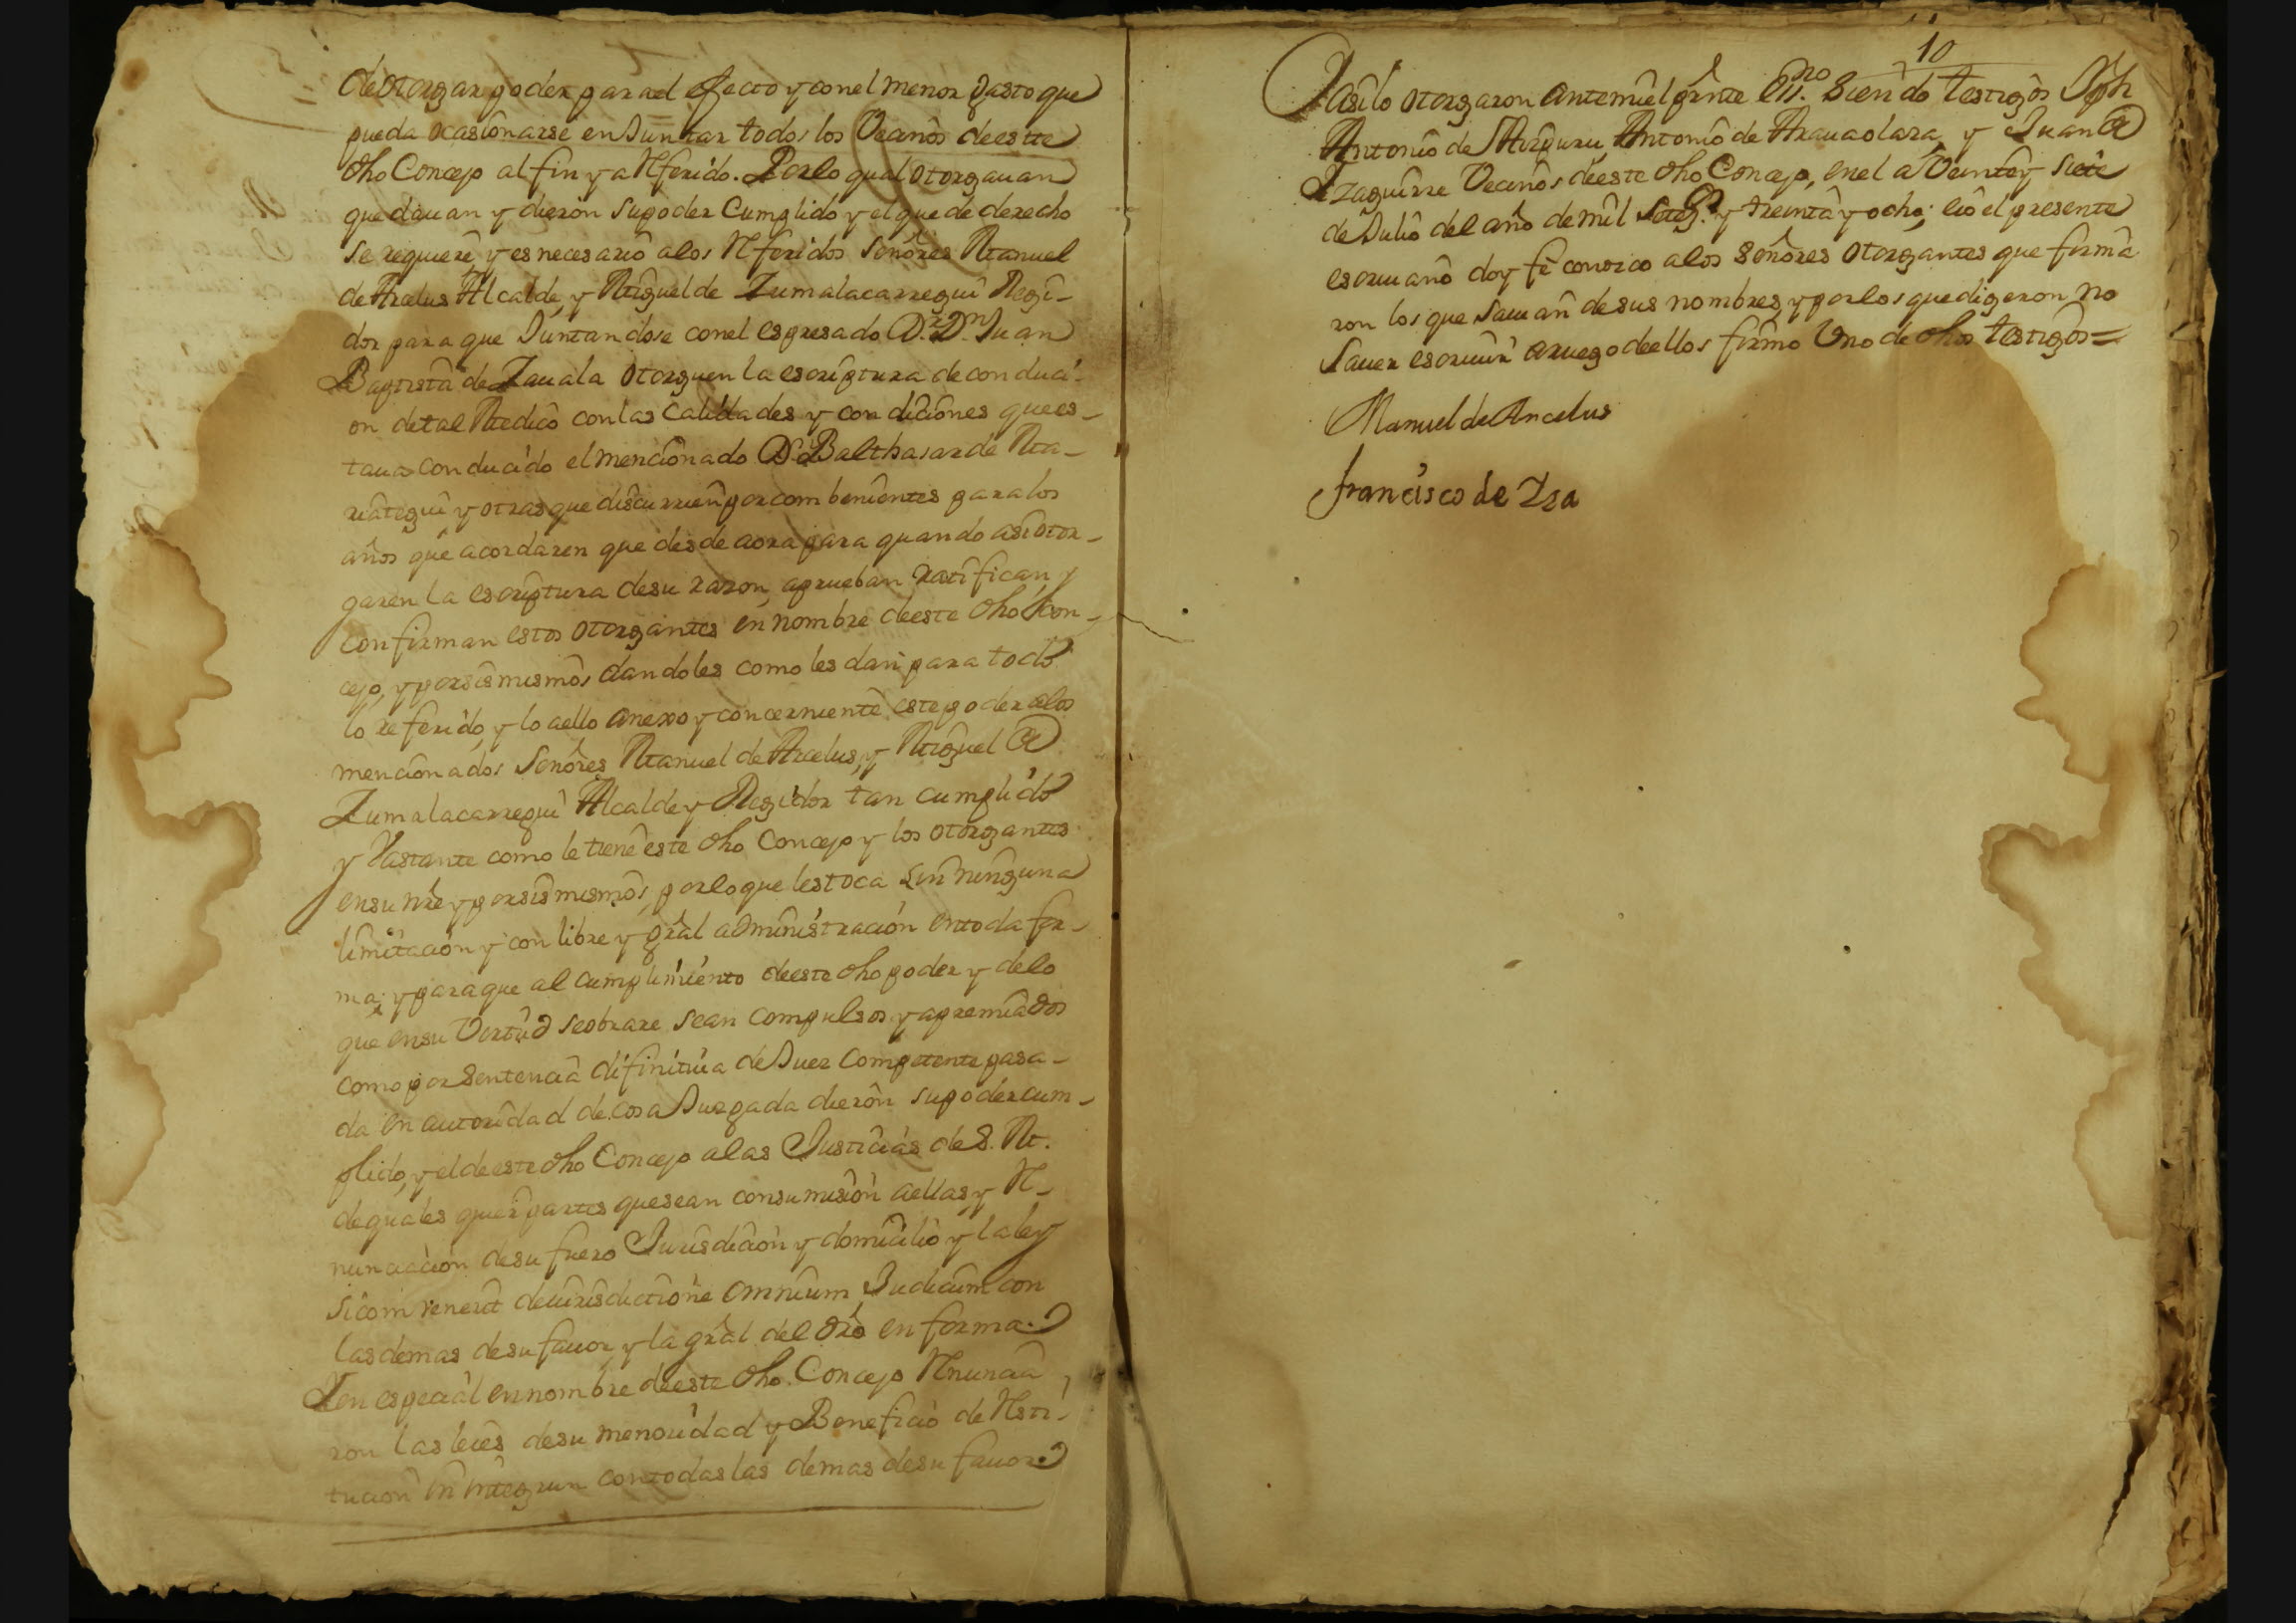 de otorgar poder para el efecto y con el menor gasto que
pueda ocasionarse en Juntar todos los Vecinos de este
dho Concejo al fin ya Referido. Por lo qual otorgauan
que dauan y dieron su poder Cumplido y el que de derecho
se requiere y es necesario a los Referidos señores Manuel
de Arcelus Alcalde, y Miguel de Zumalacarregui Regi-
dor para que Juntandose con el espresado D.r D.n Juan
Baptista de Zauala otorguen la escriptura de conduci-
on de tal Medico con las Calidades y condiciones que es-
taua conducido el mencionado D.r Balthasar de Ma-
riategui y otras que discurrieren por combenientes para los
años que acordaren que desde aora para quando asi otor-
garen la escriptura de su razon, aprueban ratifican y
confirman estos otorgantes en nombre de este dho Con-
cejo, y por si mismos dandoles como les dan para todo
lo referido, y lo a ello anexo y concerniente este poder a los
mencionados Señores Manuel de Arcelus, y Miguel de
Zumalacarregui Alcalde y Regidor tan cumplido
y Vastante como le tiene este dho Concejo y los otorgantes
en su nre y por si mismos, por lo que les toca sin ninguna
limitacion y con libre y gral administracion en toda for-
ma; y para que al cumplimiento de este dho poder y de lo
que en su Vertud se obrare sean compulsos y apremiados
como por sentencia difinitiua de Juez Competente pasa-
da en autoridad de cosa Juzgada dieron su poder cum-
plido, y el de este dho Concejo a las Justicias de S. M.
de quales quier partes que sean con sumision a ellas y Re-
nunciacion de su fuero Jurisdicion y domicilio y la ley
si combenerit de iurisdictione omnium Judicum con
las demas de su fauor y la gral del dro en forma.
Y en especial en nombre de este dho Concejo Renuncia
ron las leies de su menoridad y Beneficio de Resti-
tucion in integrun con todas las demas de su fauor.
10
Y asi lo otorgaron ante mi el prnte Ess.no Siendo testigos Jph
Antonio de Antonio de Arauaolaza, y Juan de
Yzaguirre Vecinos de este dho Concejo, en el a Veinte y siete
de Julio del año de mil setez.s y treinta y ocho; e io el presente
escriuano doy fe conozco a los Señores otorgantes que firma
ron los que sauian de sus nombres, y por los que digeron no
sauer escriuir a ruego de ellos firmo Uno de dhos testigos =
Manuel de Arcelus
francisco de Isa